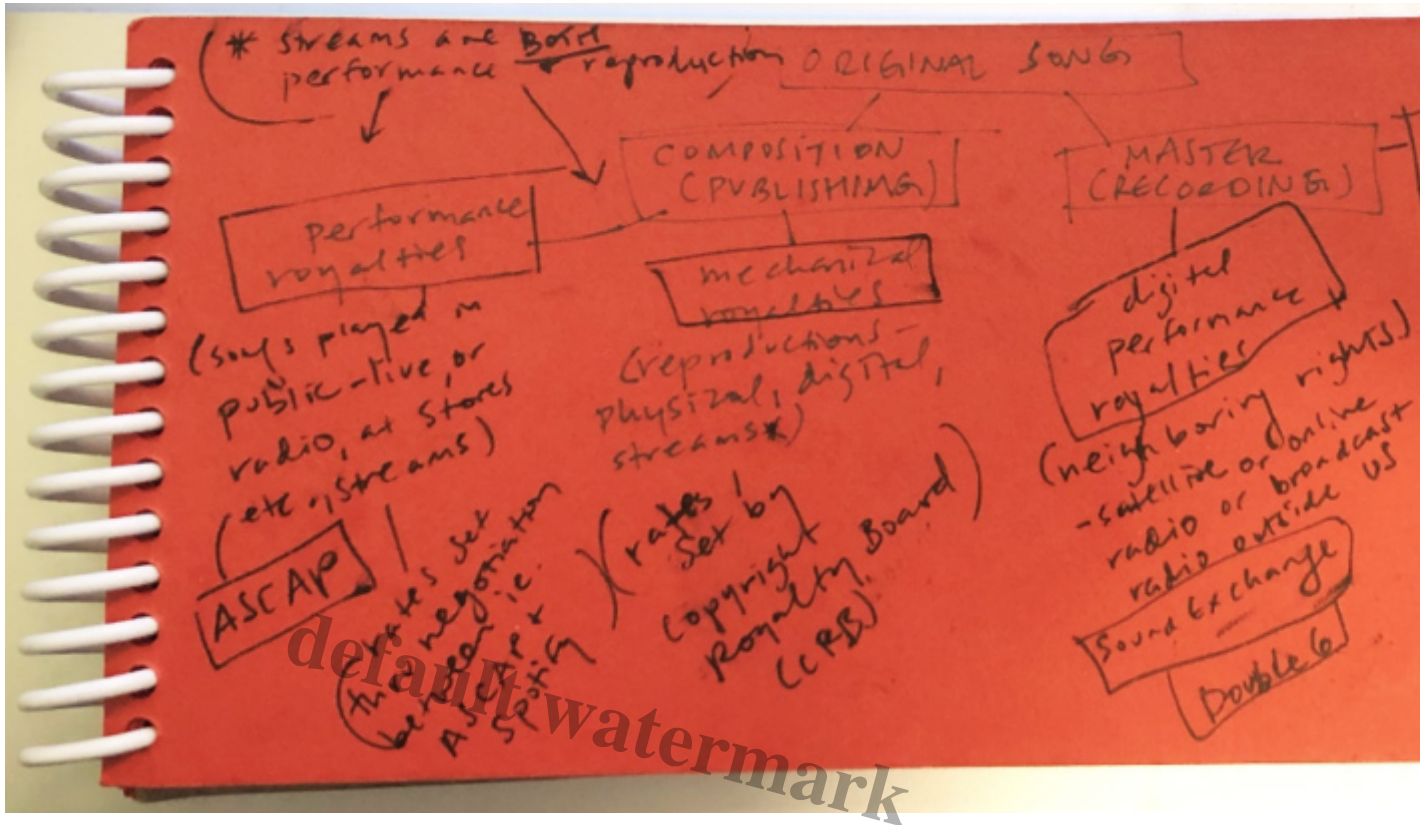 * streams are BOTH
performance & reproduction
ORIGINAL SONG
COMPOSITION
(PUBLISHING)
MASTER
(RECORDING)
performance
royalties
mechanical
royalties
digital
performance
royalties
(songs played in
public - live, or
radio, at stores
etc., streams)
(reproductions -
physical, digital,
streams*)
(neighboring rights)
- satellite or online
radio or broadcast
radio outside US
ASCAP
(rates set
thru negotiation
between ie.
ASCAP +
Spotify
(rates
set by
copyright
Royalty Board)
(CRB)
Sound Exchange
Double6
default watermark